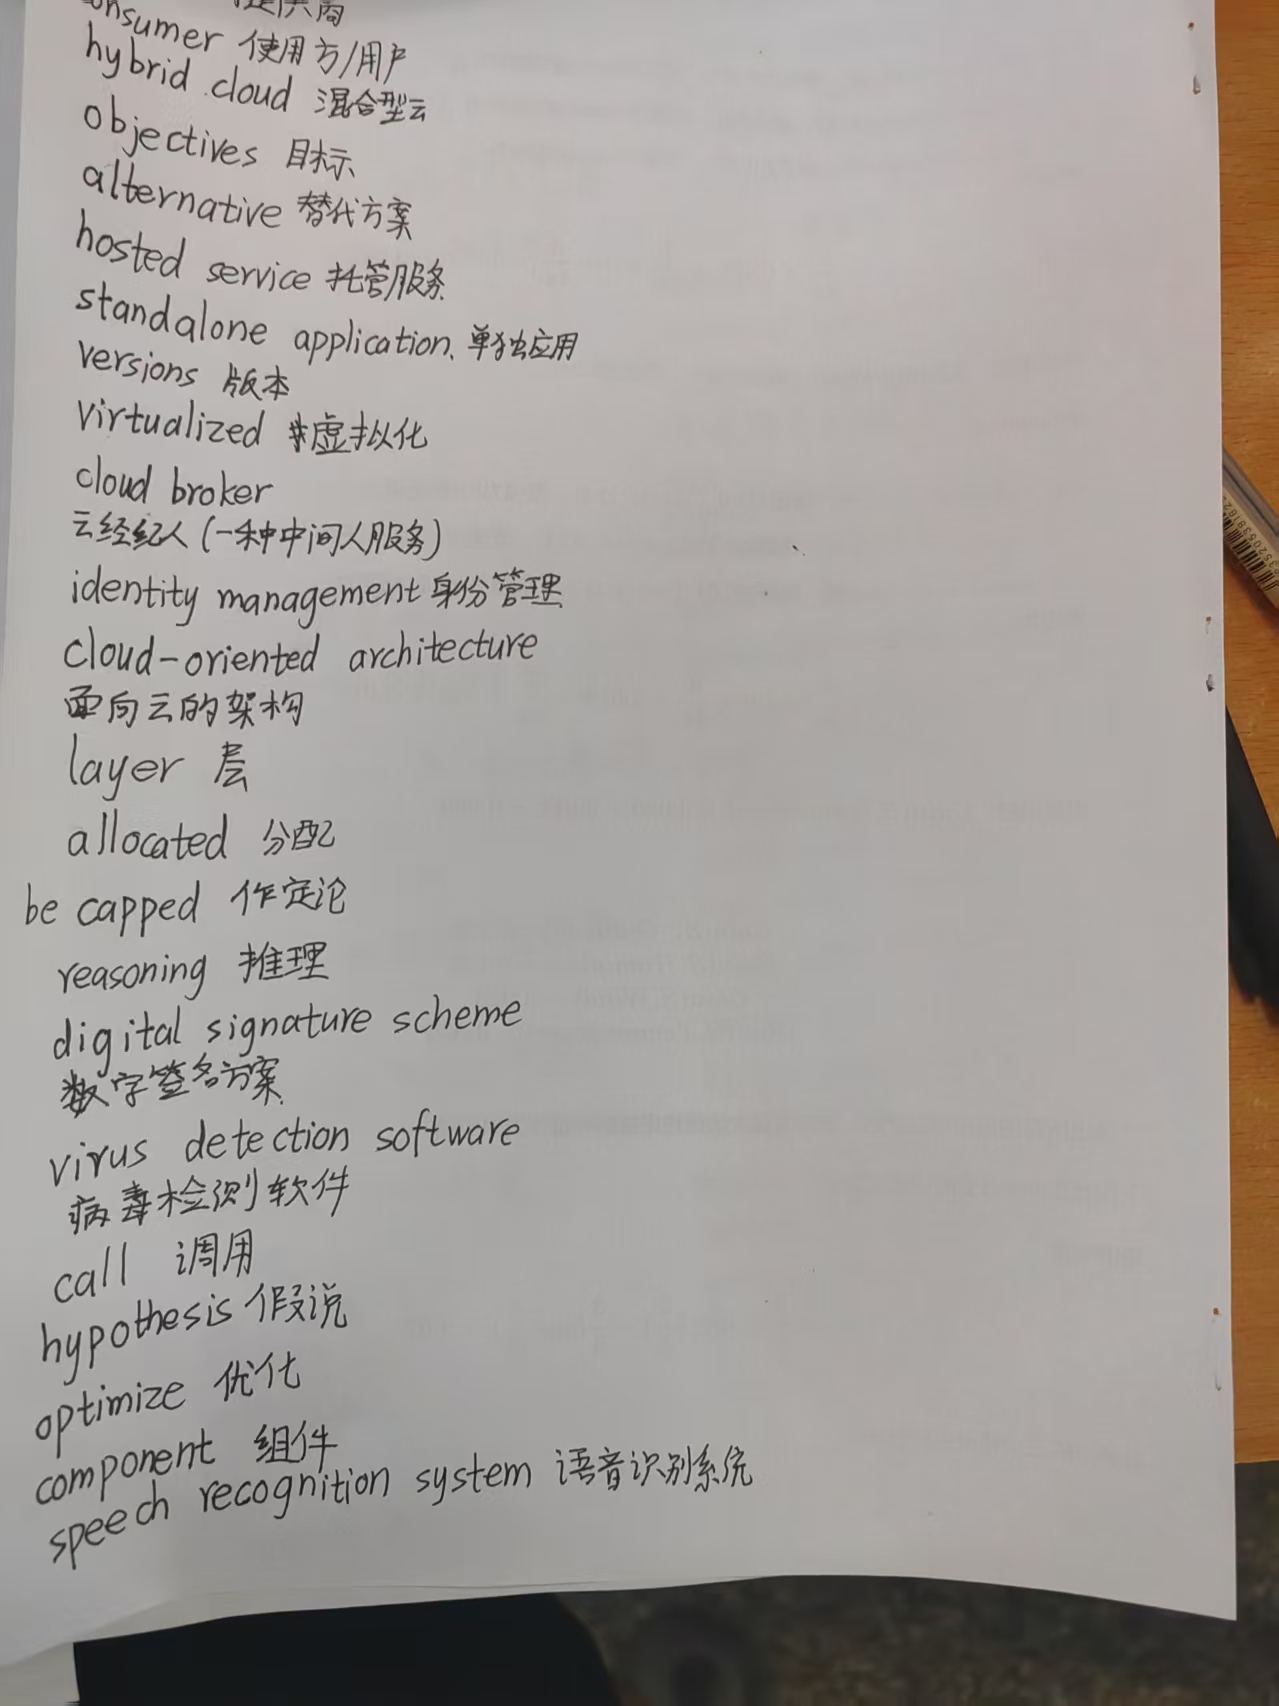 提供商
onsumer 使用方/用户
hybrid cloud 混合型云
objectives 目标
alternative 替代方案
hosted service 托管服务
standalone application. 单独应用
versions 版本
virtualized 虚拟化
cloud broker
云经纪人(一种中间人服务)
identity management 身份管理
cloud-oriented architecture
面向云的架构
layer 层
allocated 分配
be capped 作定论
reasoning 推理
digital signature scheme
数字签名方案
virus detection software
病毒检测软件
call 调用
hypothesis 假说
optimize 优化
component 组件
speech recognition system 语音识别系统